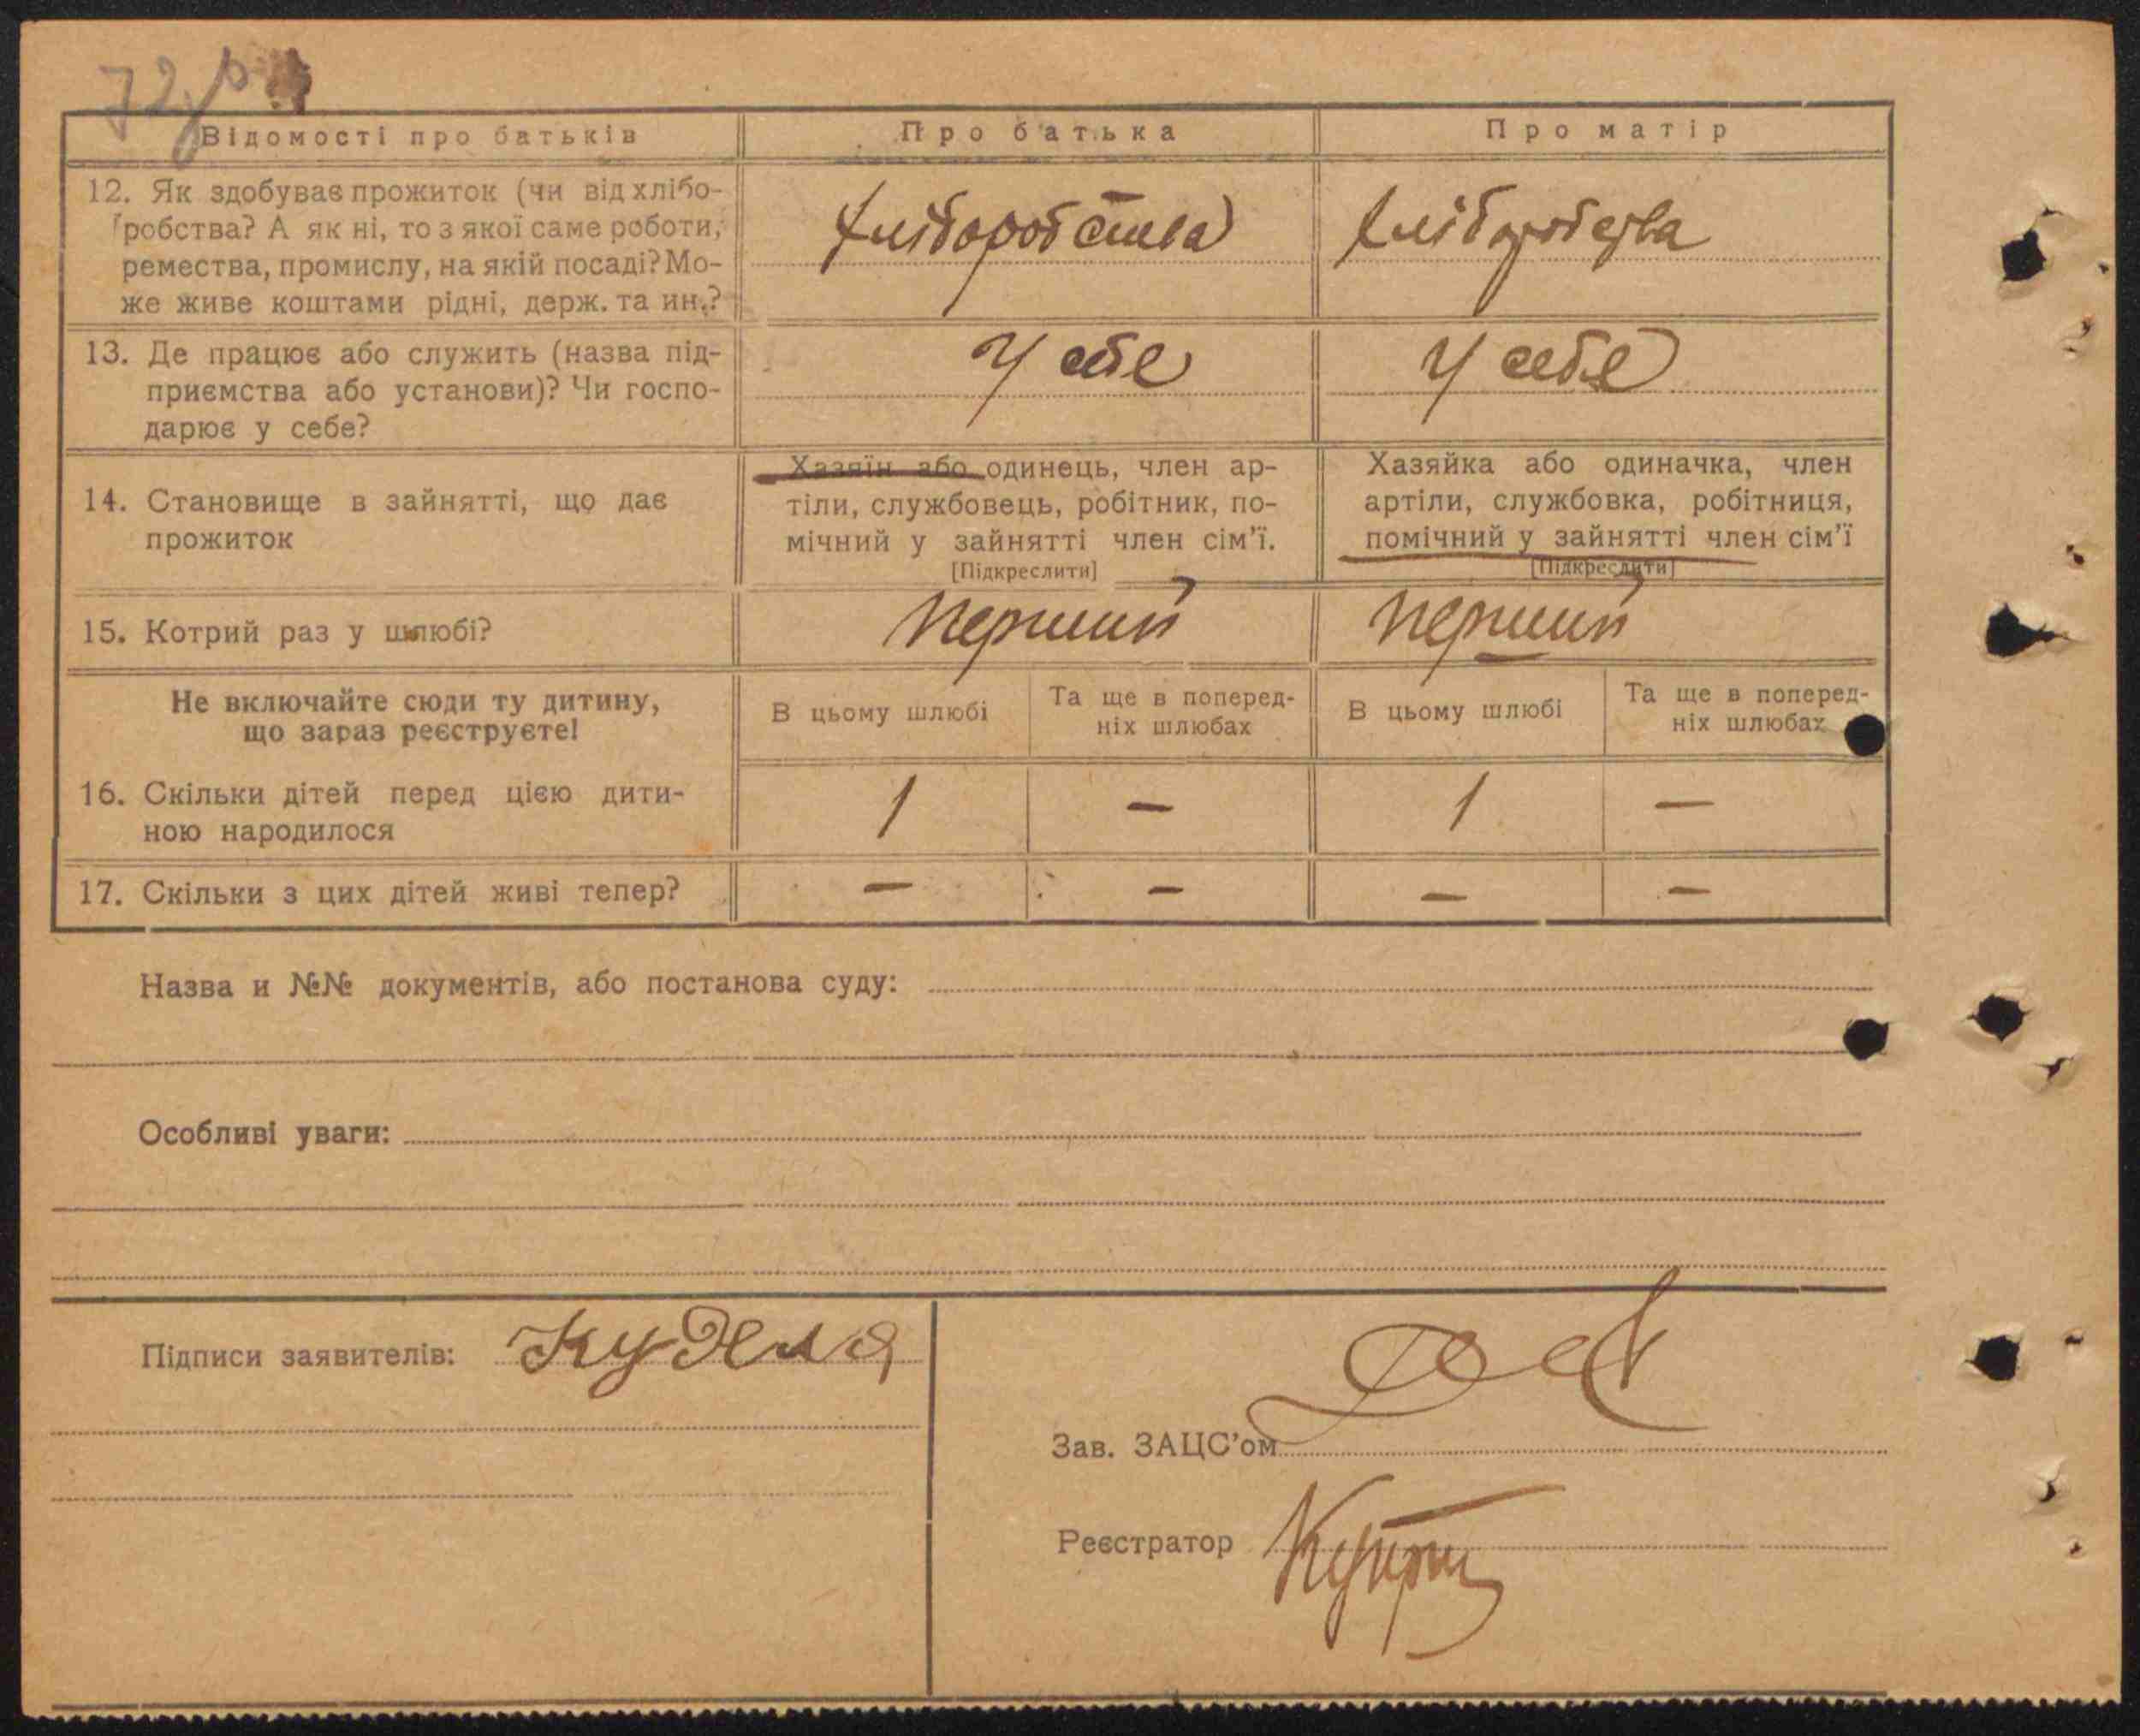 72
Відомості про батьків
Про батька
Про матір
12. Як здобуває прожиток (чи від хлібо-
робства? А як ні, то з якої саме роботи,
ремества, промислу, на якій посаді? Мо-
же живе коштами рідні, держ. та ин.?
хліборобства
хліборобства
13. Де працює або служить (назва під-
приємства або установи)? Чи госпо-
дарює у себе?
У себе
У себе
14. Становище в зайнятті, що дає
прожиток
Хазяїн або одинець, член ар-
тіли, службовець, робітник, по-
мічний у зайнятті член сім'ї.
[Підкреслити]
Хазяйка або одиначка, член
артіли, службовка, робітниця,
помічний у зайнятті член сім'ї
[Підкреслити]
15. Котрий раз у шлюбі?
Перший
Перший
Не включайте сюди ту дитину,
що зараз реєструєте!
В цьому шлюбі
Та ще в поперед-
ніх шлюбах
В цьому шлюбі
Та ще в поперед-
ніх шлюбах
16. Скільки дітей перед цією дити-
ною народилося
1 — 1 —
17. Скільки з цих дітей живі тепер?
— — — —
Назва и №№ документів, або постанова суду:
Особливі уваги:
Підписи заявителів:
Зав. ЗАЦС'ом
Реєстратор